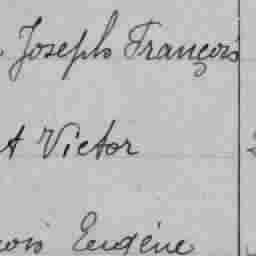 Joseph François
t Victor
ois Eugène